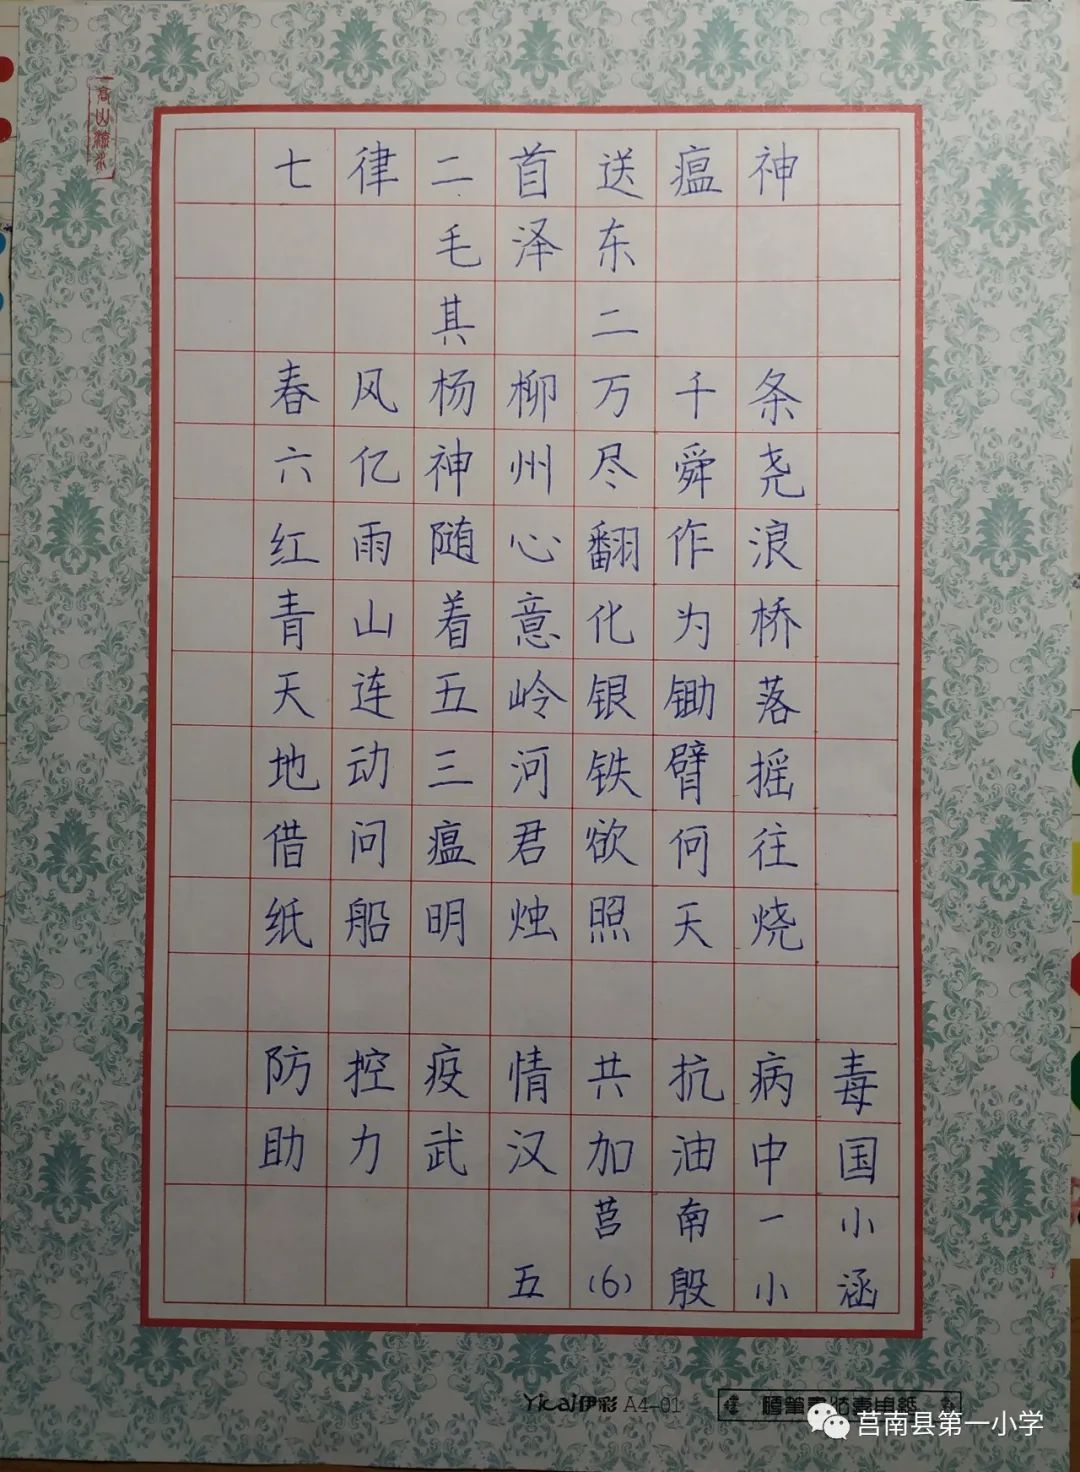 高山流水
七律二首送瘟神
毛泽东
其二
春风杨柳万千条
六亿神州尽舜尧
红雨随心翻作浪
青山着意化为桥
天连五岭银锄落
地动三河铁臂摇
借问瘟君欲何往
纸船明烛照天烧
防控疫情共抗病毒
助力武汉加油中国
莒南一小
五(6)殷小涵
Yicai伊彩 A4-01
莒南县第一小学